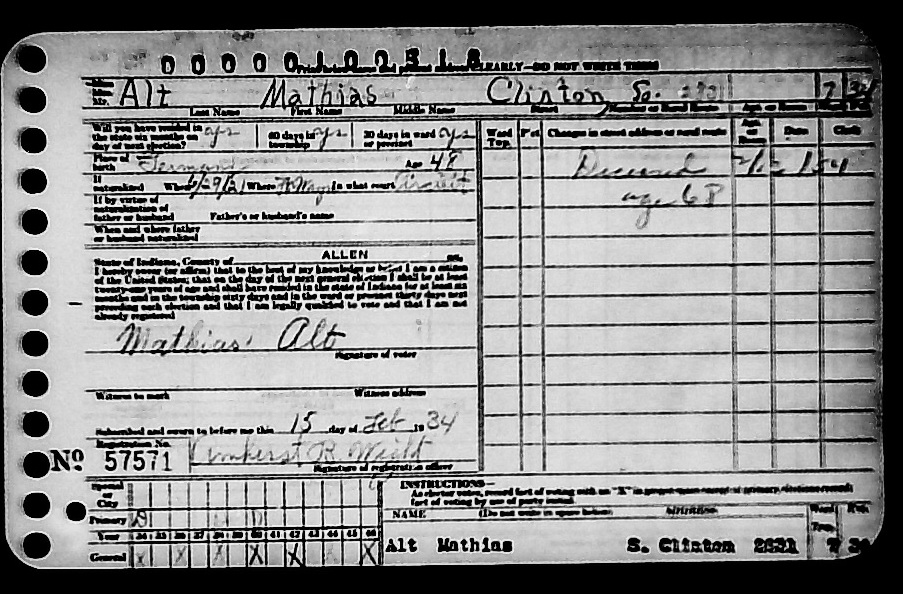 0 0 0 0 0 1 0 2 3 1 8
CLEARLY—DO NOT WRITE
Mr. Alt Mathias Clinton So. 7 30
Last Name First Name Middle Name Street Number or Rural Route
Will you have resided in the state six months on day of next election? yes 60 days in township yes 30 days in ward or precinct yes
Ward Twp. Pct Changes in street address or rural route Date Clerk
Place of birth Germany Age 48
Deceased
If naturalized When Where Ft Wayne In what court Circuit
age 68
If by virtue of naturalization of father or husband Father's or husband's name
When and where father or husband naturalized
State of Indiana, County of ALLEN ss.
I hereby swear (or affirm) that to the best of my knowledge or belief I am a citizen
of the United States; that on the day of the next general election I shall be at least
twenty-one years of age and shall have resided in the state of Indiana for at least six
months and in the township sixty days and in the ward or precinct thirty days next
preceding such election and that I am legally qualified to vote and that I am not
already registered
Mathias Alt
Signature of voter
Witness to mark Witness address
Subscribed and sworn to before me this 15 day of Feb 1934
Registration No.
Nº 57571
Signature of registration officer
Special or City
INSTRUCTIONS—
Primary
NAME (Do not write in space below)
Year 34 35 36 37 38 39 40 41 42 43 44 45 46
General X X X X X X
Alt Mathias S. Clinton 2831 7 30